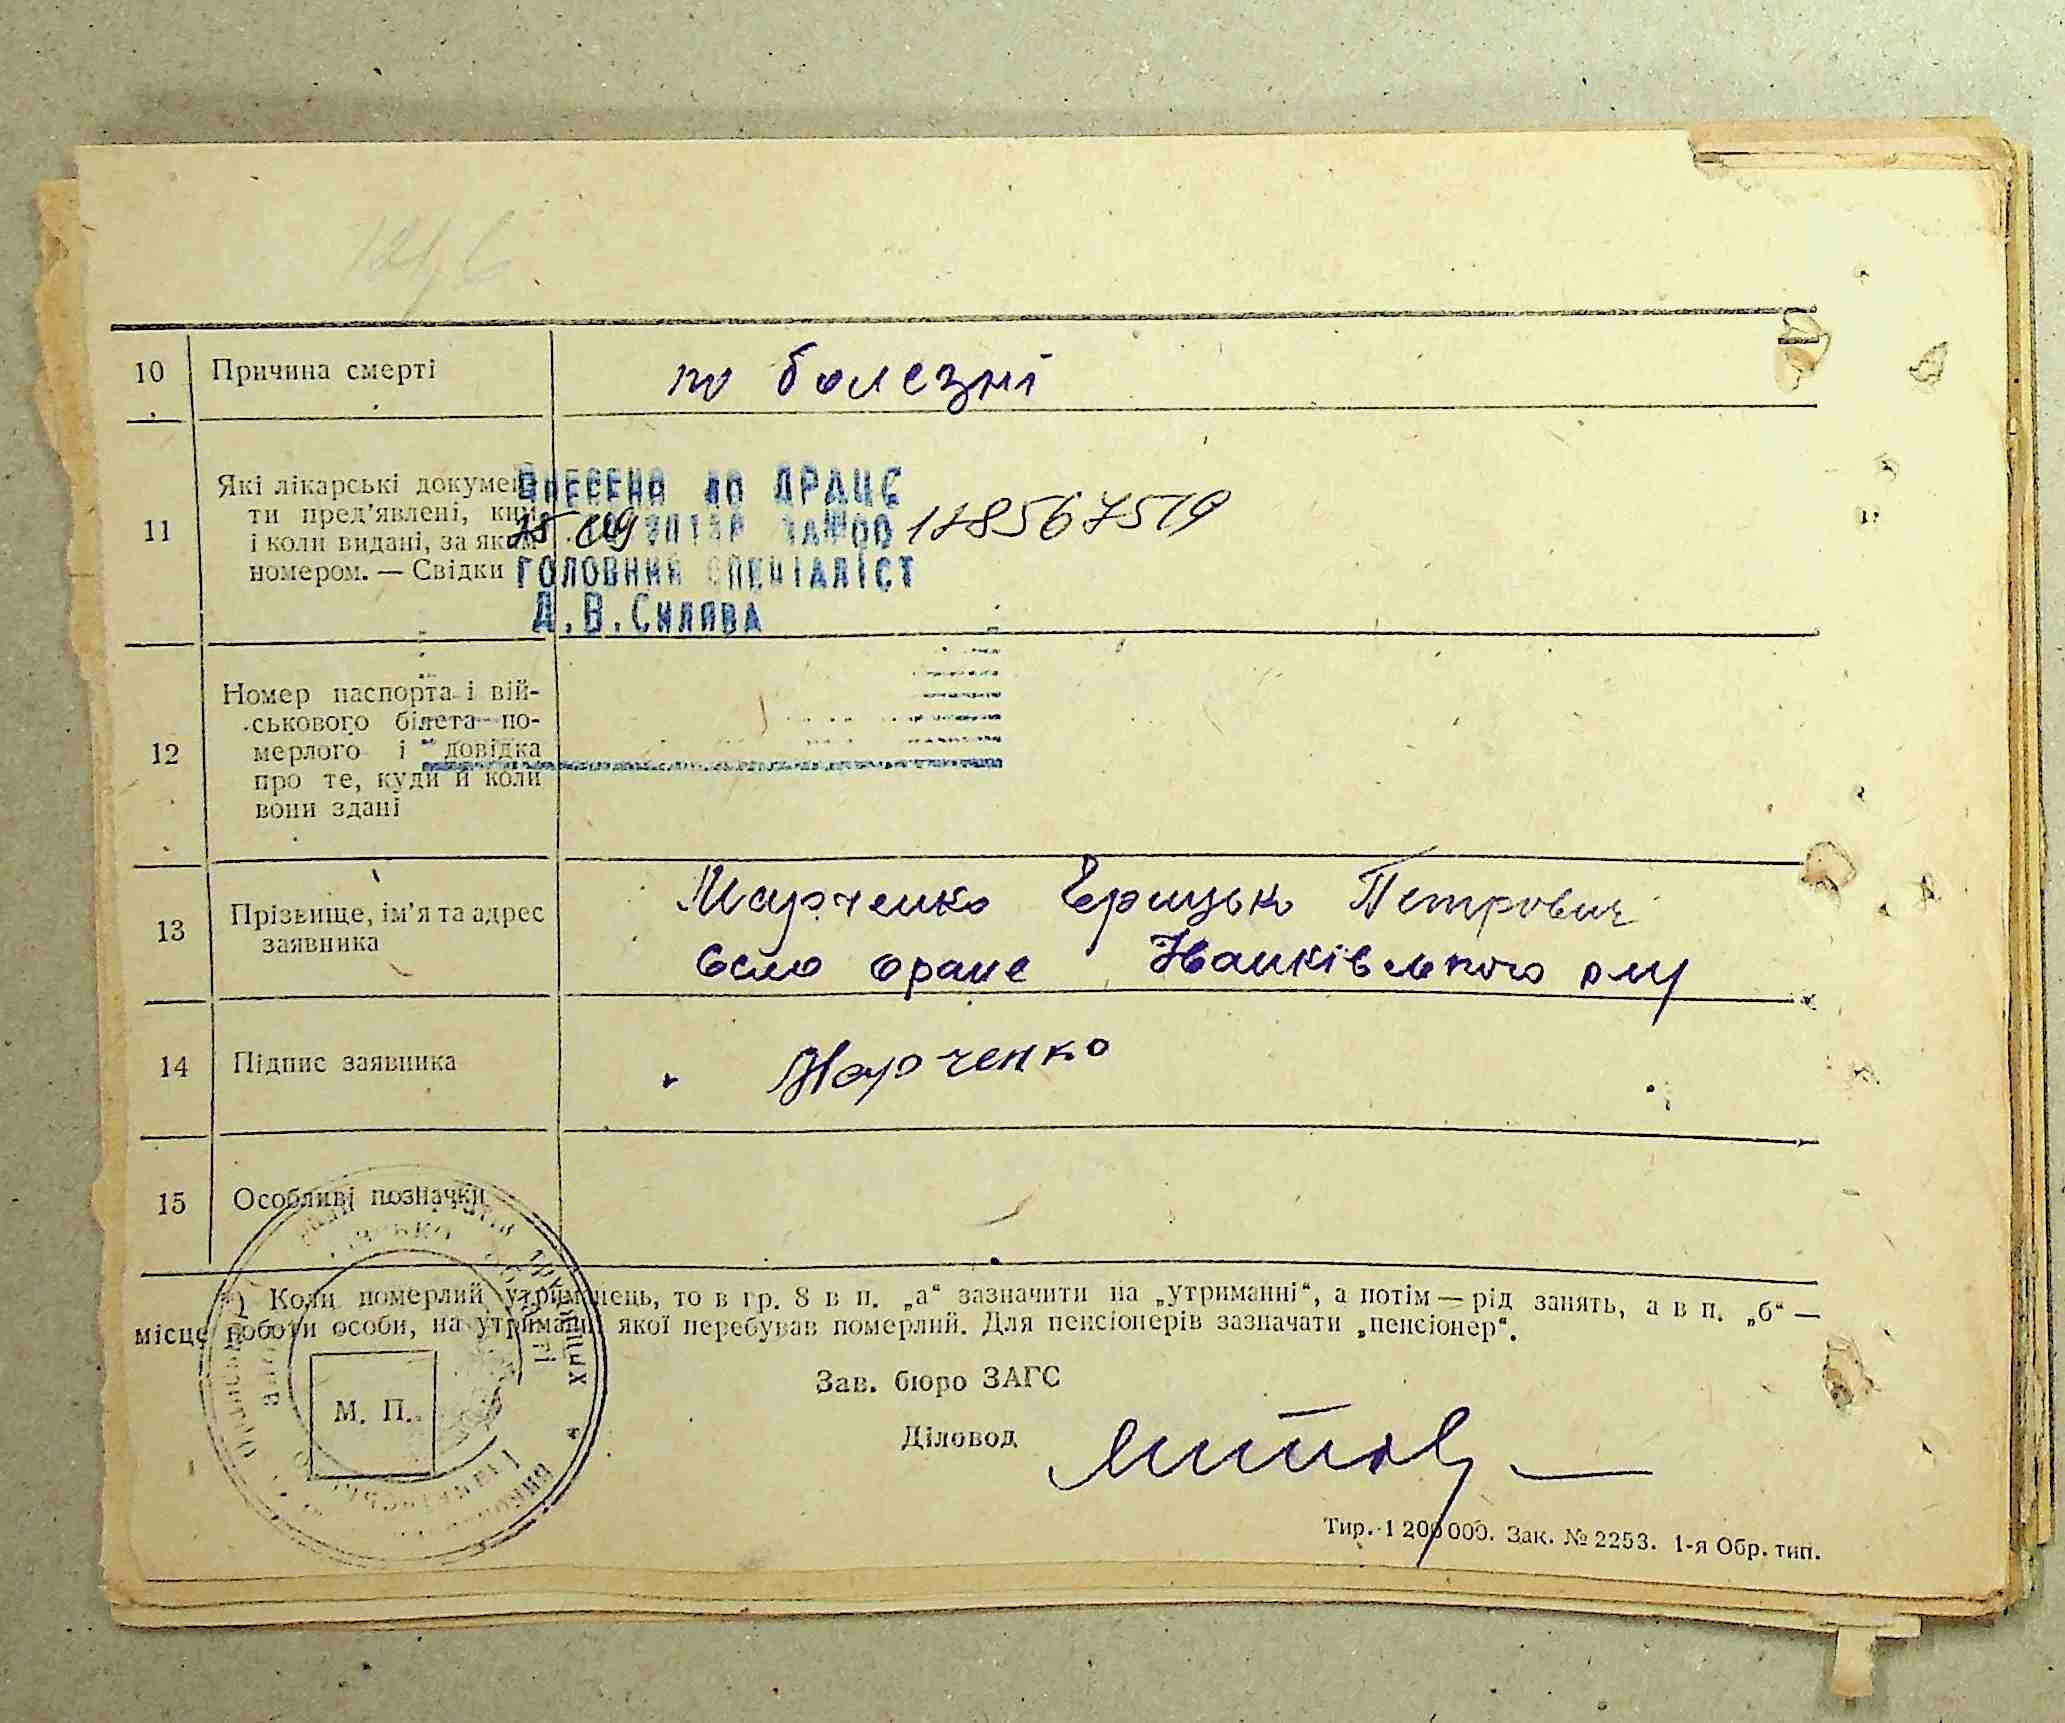 10 Причина смерті по болезні
ВНЕСЕНО ДО ДРАЦС
11 Які лікарські докумен-
ти пред'явлені, ким
і коли видані, за яким
номером. — Свідки
ЗА №00 178567519
ГОЛОВНИЙ СПЕЦІАЛІСТ
Д.В.Силява
12 Номер паспорта і вій-
ськового білета по-
мерлого і довідка
про те, куди й коли
вони здані
13 Прізвище, ім'я та адрес
заявника
Марченко Грицько Петрович
село оране Іванківського р-ну
14 Підпис заявника Марченко
15 Особливі позначки
) Коли померлий утриманець, то в гр. 8 в п. „а“ зазначити на „утриманні“, а потім — рід занять, а в п. „б“ —
місце роботи особи, на утриманні якої перебував померлий. Для пенсіонерів зазначати „пенсіонер“.
Зав. бюро ЗАГС
М. П.
Діловод
Тир. 1 200 000. Зак. № 2253. 1-я Обр. тип.